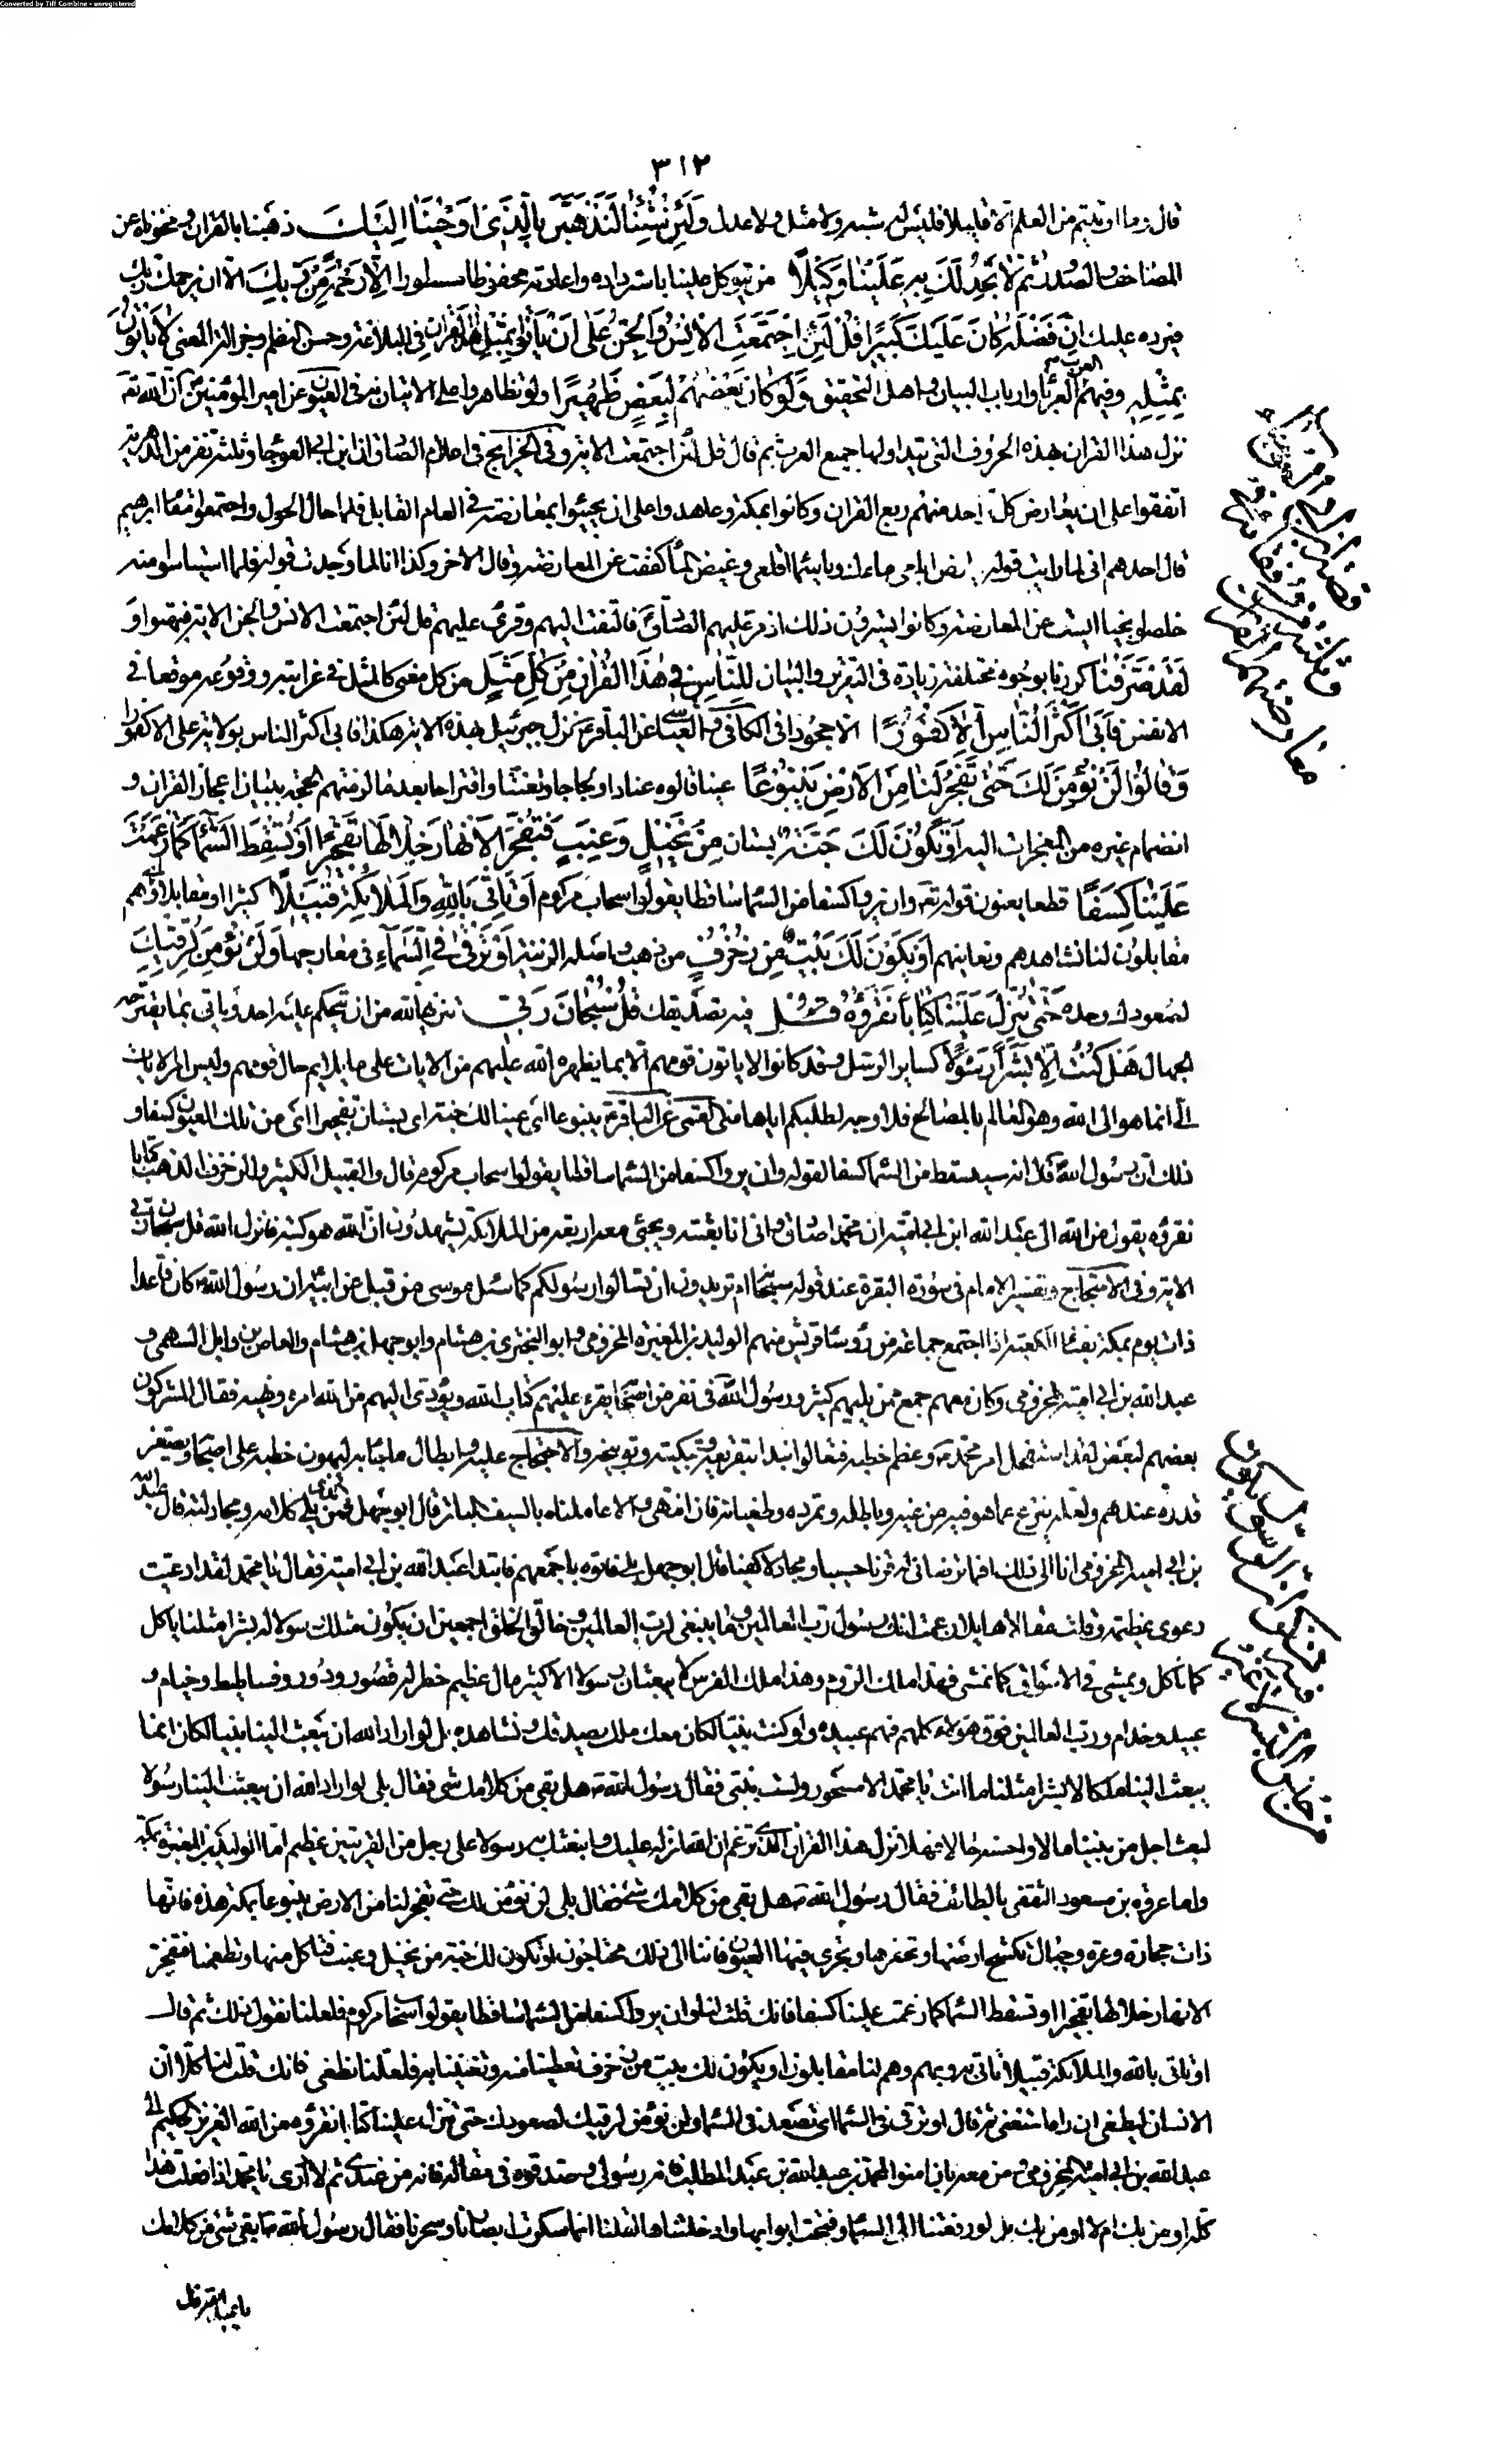 Converted by Tiff Combine - unregistered
٣١٢
قال وما اوتيتم من العلم الا قليلا فليس له شبه ولا مثل ولا عدل وَلَئِنْ شِئْنَا لَنَذْهَبَنَّ بِالَّذِي اَوْحَيْنَا اِلَيْكَ ذهبنا بالقران ومحوناه عن
المصاحف والصدور ثُمَّ لَا تَجِدُ لَكَ بِهِ عَلَيْنَا وَكِيلًا من يتوكل علينا باسترداده واعادته محفوظا مسطورا اِلَّا رَحْمَةً مِنْ رَبِّكَ الا ان يرحمك ربك
فيرده عليك اِنَّ فَضْلَهُ كَانَ عَلَيْكَ كَبِيرًا قُلْ لَئِنِ اجْتَمَعَتِ الْاِنْسُ وَالْجِنُّ عَلٰى اَنْ يَأْتُوا بِمِثْلِ هٰذَا الْقُرْاٰنِ فى البلاغة وحسن النظم وجزالة المعنى لَا يَأْتُونَ
بِمِثْلِهِ وفيهم العرب العرباء وارباب البيان واهل التحقيق وَلَوْ كَانَ بَعْضُهُمْ لِبَعْضٍ ظَهِيرًا ولو تظاهروا على الاتيان به فى العيون عن امير المؤمنين ان الله تعـ
نزل هذا القران بهذه الحروف التى يتداولها جميع العرب ثم قال قل لئن اجتمعت الاية وفى الخرايج فى اعلام الصادق ان ابن ابى العوجا وثلثة نفر من الدهرية
اتفقوا على ان يعارض كل واحد منهم ربع القران وكانوا بمكة وعاهدوا على ان يجيئوا بمعارضته فى العام القابل فلما حال الحول واجتمعوا فى مقام ابرهيم
قال احدهم انى لما رايت قوله يا ارض ابلعى ماءك ويا سماء اقلعى وغيض الماء كففت عن المعارضة وقال الاخر وكذا انا لما وجدت قوله فلما استيئسوا منه
خلصوا نجيا ايست عن المعارضة وكانوا يسترون ذلك اذ مر عليهم الصادق فالتفت اليهم وقرء عليهم قل لئن اجتمعت الانس والجن الاية فبهتوا وَ
لَقَدْ صَرَّفْنَا كررنا بوجوه مختلفة زيادة فى التقرير والبيان لِلنَّاسِ فِي هٰذَا الْقُرْاٰنِ مِنْ كُلِّ مَثَلٍ من كل معنى كالمثل فى غرابته ووقوعه موقعا فى
الانفس فَاَبٰى اَكْثَرُ النَّاسِ اِلَّا كُفُورًا الا جحودا فى الكافى والعياشى عن الباقر ع نزل جبرئيل بهذه الاية هكذا فابى اكثر الناس بولاية على الا كفورا
وَقَالُوا لَنْ نُؤْمِنَ لَكَ حَتّٰى تَفْجُرَ لَنَا مِنَ الْاَرْضِ يَنْبُوعًا عينا قالوه عنادا ولجاجا وتعنتا واقتراحا بعد ما لزمتهم الحجة ببيان اعجاز القران و
انضمام غيره من المعجزات اليه اَوْ تَكُونَ لَكَ جَنَّةٌ بستان مِنْ نَخِيلٍ وَعِنَبٍ فَتُفَجِّرَ الْاَنْهَارَ خِلَالَهَا تَفْجِيرًا اَوْ تُسْقِطَ السَّمَاءَ كَمَا زَعَمْتَ
عَلَيْنَا كِسَفًا قطعا يعنون قوله تعـ وان يروا كسفا من السماء ساقطا يقولوا سحاب مركوم اَوْ تَأْتِيَ بِاللّٰهِ وَالْمَلَائِكَةِ قَبِيلًا كثيرا او مقابلا اى هم
مقابلون لنا نشاهدهم ونعاينهم اَوْ يَكُونَ لَكَ بَيْتٌ مِنْ زُخْرُفٍ من ذهب واصله الزينة اَوْ تَرْقٰى فِي السَّمَاءِ فى معارجها وَلَنْ نُؤْمِنَ لِرُقِيِّكَ
لصعودك وحده حَتّٰى تُنَزِّلَ عَلَيْنَا كِتَابًا نَقْرَؤُهُ فيه تصديقك قُلْ سُبْحَانَ رَبِّي تنزيها لله من ان يتحكم عليه احد وياتى بما يقترحه
الجهال هَلْ كُنْتُ اِلَّا بَشَرًا رَسُولًا كساير الرسل وقد كانوا لا ياتون قومهم الا بما يظهره الله عليهم من الايات على ما يلايم حال قومهم وليس امر الايات
الى انما هو الى الله وهو العالم بالمصالح فلا وجه لطلبكم اياها منى القمى عن الباقر ع ينبوعا اى عينا لك جنة اى بستان تفجيرا اى من تلك العيون كسفا و
ذلك ان رسول الله قال انه سيسقط من السماء كسفا لقوله وان يروا كسفا من السماء ساقطا يقولوا سحاب مركوم قال والقبيل الكثير والزخرف الذهب كتابا
نقرؤه يقول من الله الى عبد الله ابن ابى امية ان محمدا صادق وانى انا بعثته ويجئ معه اربعة من الملائكة يشهدون ان الله هو كتبه فانزل الله قل سبحان ربى
الاية وفى الاحتجاج وتفسير الامام فى سورة البقرة عند قوله سبحانه ام تريدون ان تسالوا رسولكم كما سئل موسى من قبل عن ابيه ان رسول الله كان قاعدا
ذات يوم بمكة بفناء الكعبة اذ اجتمع جماعة من رؤساء قريش منهم الوليد بن المغيرة المخزومى وابو البخترى بن هشام وابو جهل بن هشام والعاص بن وايل السهمى و
عبد الله بن ابى امية المخزومى وكان معهم جمع ممن يليهم كثير ورسول الله فى نفر من اصحابه يقرء عليهم كتاب الله ويؤدى اليهم من الله امره ونهيه فقال المشركون
بعضهم لبعض لقد استفحل امر محمد ص وعظم خطبه فتعالوا نبدا بتقريعه وتبكيته وتوبيخه والاحتجاج عليه وابطال ما جاء به ليهون خطبه على اصحابه ويصغر
قدره عندهم ولعله ينزع عما هو فيه من غيه وباطله وتمرده وطغيانه فان انتهى والا عاملناه بالسيف الباتر قال ابو جهل فمن الذى يلى كلامه ومجادلته قال عبد الله
بن ابى امية المخزومى انا الى ذلك افما ترضانى له قرنا حسيبا ومجادلا كفيا قال ابو جهل بلى فاتوه باجمعهم فابتدا عبد الله بن ابى امية فقال يا محمد لقد ادعيت
دعوى عظيمة وقلت مقالا هايلا زعمت انك رسول رب العالمين وما ينبغى لرب العالمين وخالق الخلق اجمعين ان يكون مثلك رسولا له بشرا مثلنا ياكل
كما ناكل ويمشى فى الاسواق كما نمشى فهذا ملك الروم وهذا ملك الفرس لا يبعثان رسولا الا كثير مال عظيم خطر له قصور ودور وفساطيط وخيام و
عبيد وخدام ورب العالمين فوق هؤلاء كلهم فهم عبيده ولو كنت نبيا لكان معك ملك يصدقك ونشاهده بل لو اراد الله ان يبعث الينا نبيا لكان انما
يبعث الينا ملكا لا بشرا مثلنا ما انت يا محمد الا مسحور ولست بنبى فقال رسول الله ص هل بقى من كلامك شئ فقال بلى لو اراد الله ان يبعث الينا رسولا
لبعث اجل من بيننا مالا واحسنه حالا فهلا نزل هذا القران الذى تزعم ان الله انزله عليك وابتعثك به رسولا على رجل من القريتين عظيم اما الوليد بن المغيرة بمكة
واما عروة بن مسعود الثقفى بالطائف فقال رسول الله ص هل بقى من كلامك شئ فقال بلى لن نؤمن لك حتى تفجر لنا من الارض ينبوعا بمكة هذه فانها
ذات حجارة وعرة وجبال تكسح ارضها وتحفرها وتجرى فيها العيون فاننا الى ذلك محتاجون او تكون لك جنة من نخيل وعنب فتاكل منها وتطعمنا فتفجر
الانهار خلالها تفجيرا او تسقط السماء كما زعمت علينا كسفا فانك قلت لنا وان يروا كسفا من السماء ساقطا يقولوا سحاب مركوم فلعلنا نقول ذلك ثم قال
او تاتى بالله والملائكة قبيلا تاتى به وبهم وهم لنا مقابلون او يكون لك بيت من زخرف تعطينا منه وتغنينا به فلعلنا نطغى فانك قلت لنا كلا ان
الانسان ليطغى ان راه استغنى ثم قال او ترقى فى السماء اى تصعد فى السماء ولن نؤمن لرقيك لصعودك حتى تنزل علينا كتابا نقرؤه من الله العزيز الحكيم الى
عبد الله بن ابى امية المخزومى ومن معه بان امنوا بمحمد بن عبد الله بن عبد المطلب فانه رسولى وصدقوه فى مقاله فانه من عندى ثم لا ادرى يا محمد اذا فعلت هذا
كله اومن بك ام لا اومن بك بل لو رفعتنا الى السماء وفتحت ابوابها وادخلتناها لقلنا انما سكرت ابصارنا وسحرتنا فقال رسول الله ص ما بقى شئ من كلامك
يا عبد الله قال